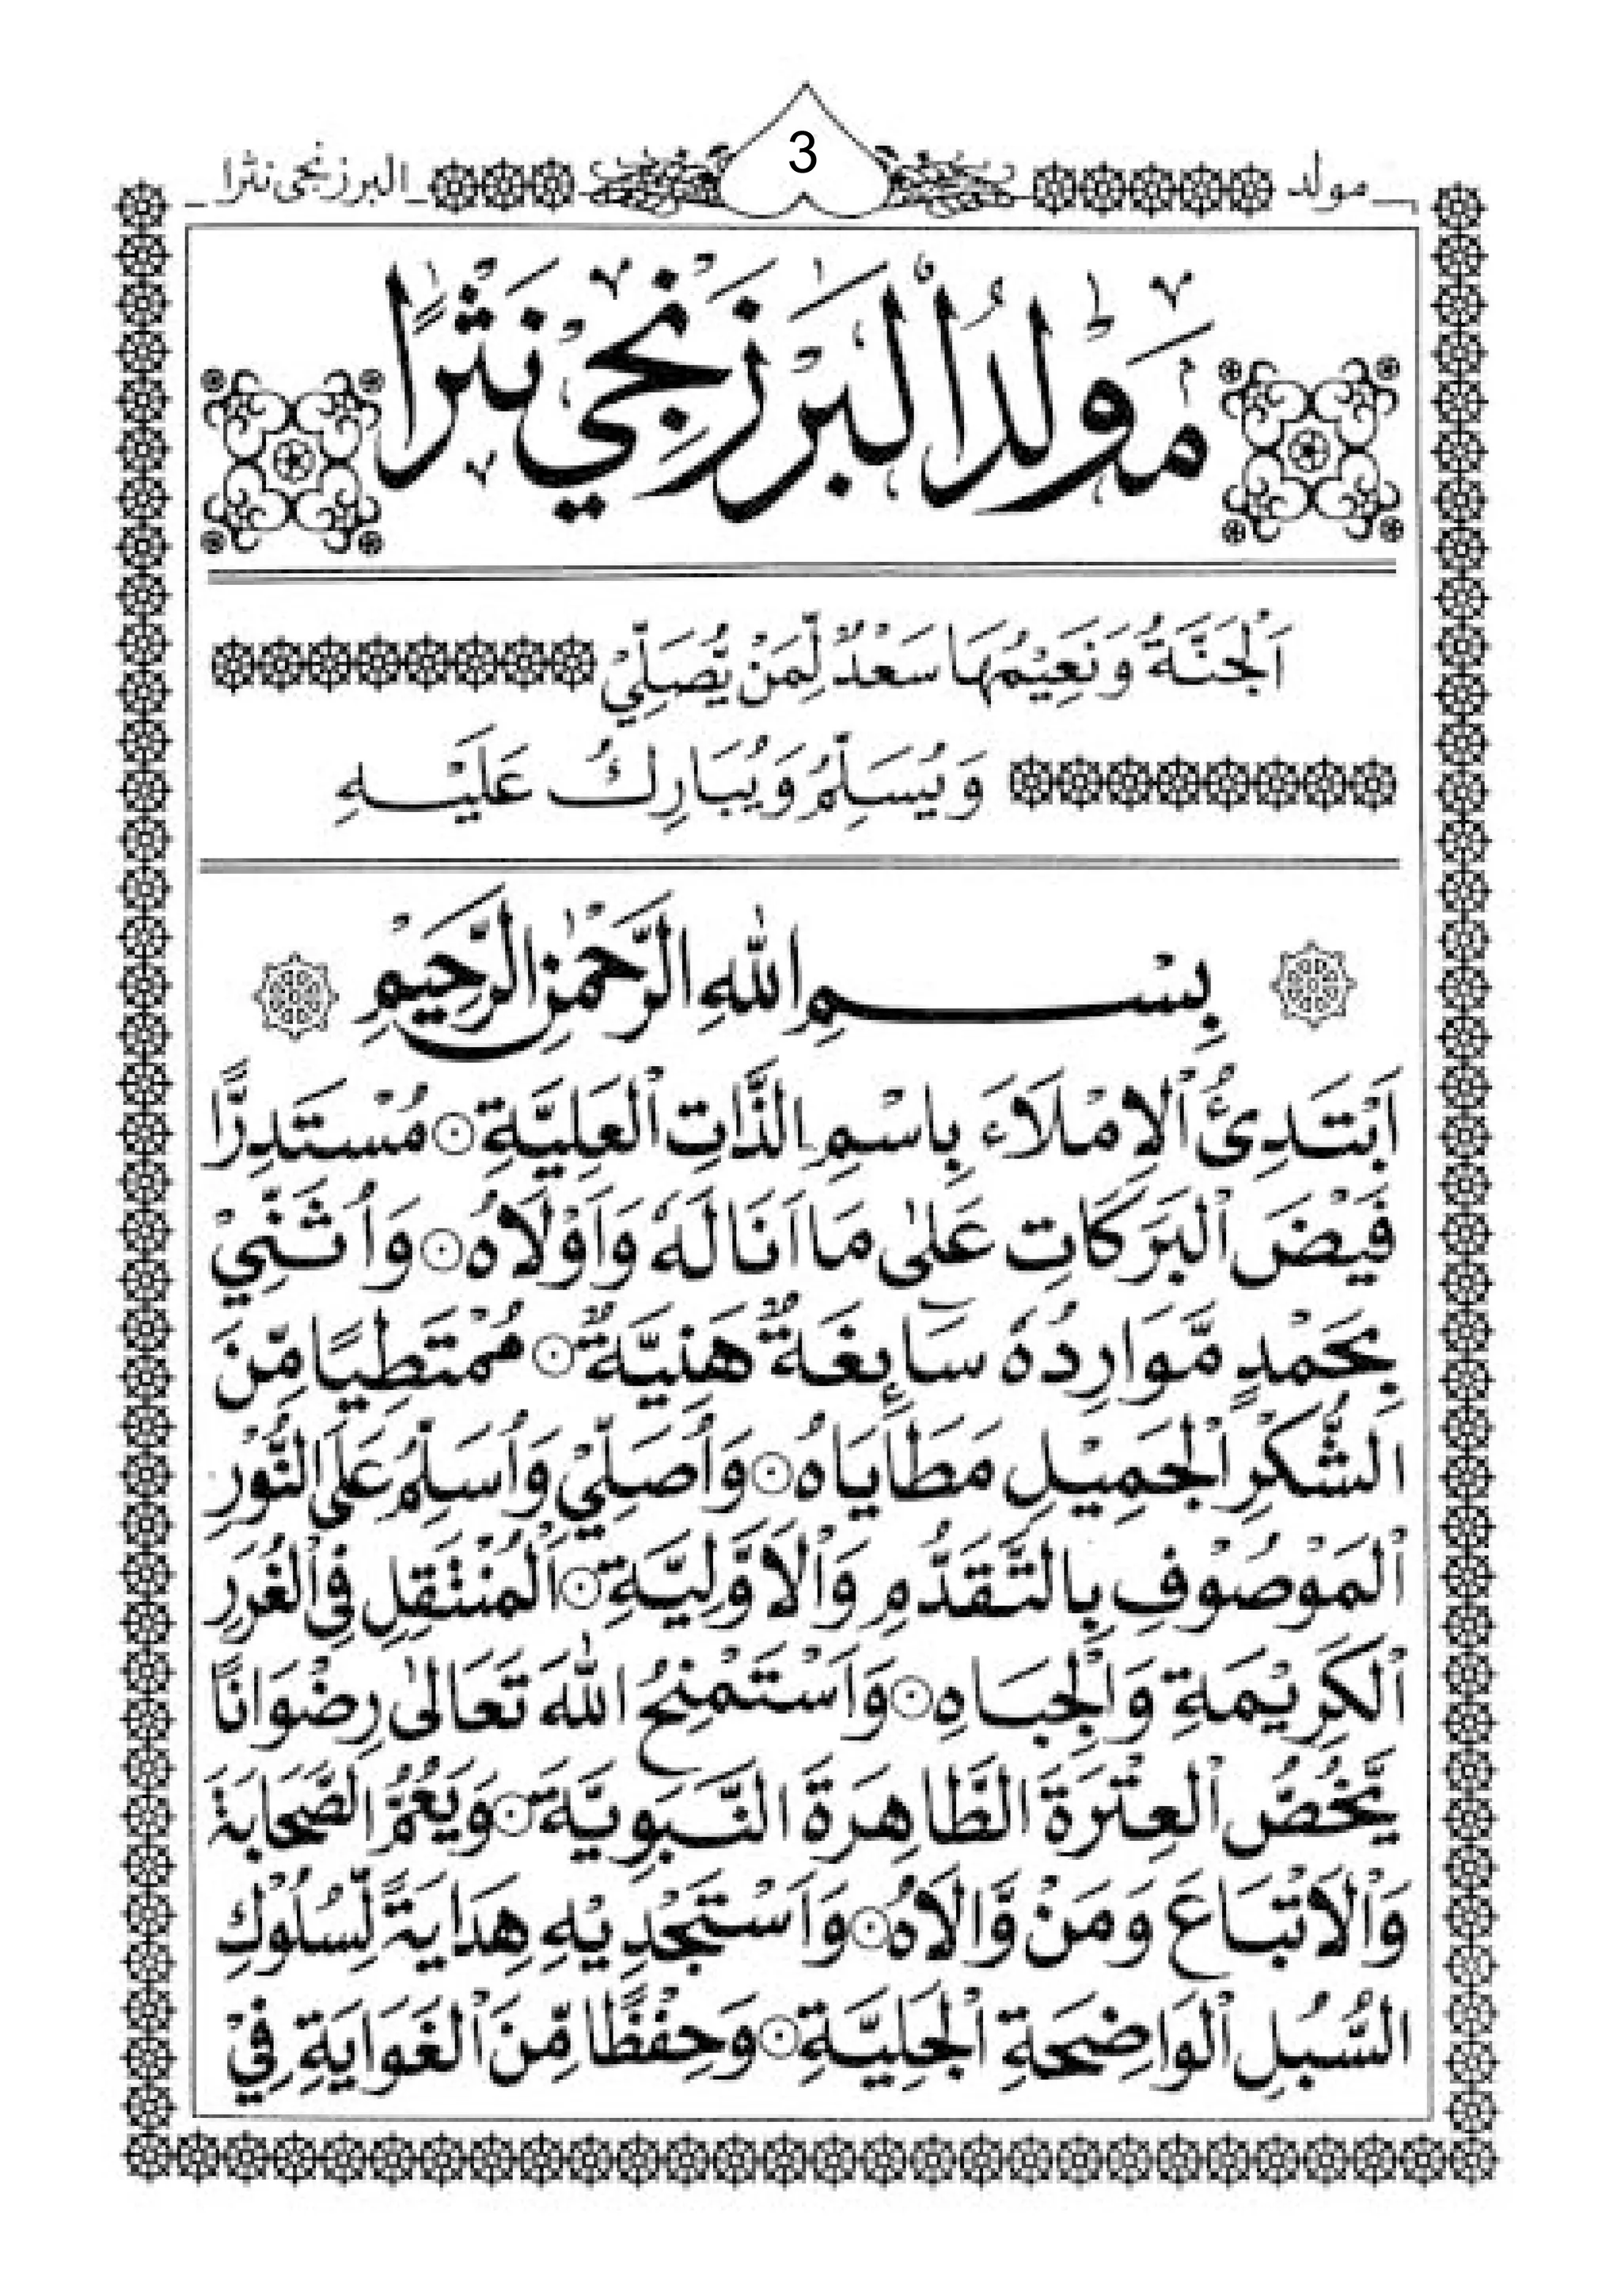 مولد
3
البرزنجي نثرا
مَوْلِدُ الْبَرْزَنْجِيْ نَثْرًا
اَلْجَنَّةُ وَنَعِيْمُهَا سَعْدٌ لِّمَنْ يُّصَلِّيْ
وَيُسَلِّمُ وَيُبَارِكُ عَلَيْهِ
بِسْمِ اللّٰهِ الرَّحْمٰنِ الرَّحِيْمِ
اَبْتَدِئُ الْاِمْلَاءَ بِاسْمِ الذَّاتِ الْعَلِيَّةِ ۞ مُسْتَدِرًّا
فَيْضَ الْبَرَكَاتِ عَلٰى مَا اَنَالَهُ وَاَوْلَاهُ ۞ وَاُثَنِّيْ
بِحَمْدٍ مَّوَارِدُهُ سَائِغَةٌ هَنِيَّةٌ ۞ مُمْتَطِيًا مِّنَ
الشُّكْرِ الْجَمِيْلِ مَطَايَاهُ ۞ وَاُصَلِّيْ وَاُسَلِّمُ عَلَى النُّوْرِ
الْمَوْصُوْفِ بِالتَّقَدُّمِ وَالْاَوَّلِيَّةِ ۞ الْمُنْتَقِلِ فِى الْغُرَرِ
الْكَرِيْمَةِ وَالْجِبَاهِ ۞ وَاَسْتَمْنِحُ اللّٰهَ تَعَالٰى رِضْوَانًا
يَّخُصُّ الْعِتْرَةَ الطَّاهِرَةَ النَّبَوِيَّةَ ۞ وَيَعُمُّ الصَّحَابَةَ
وَالْاَتْبَاعَ وَمَنْ وَّالَاهُ ۞ وَاَسْتَجْدِيْهِ هِدَايَةً لِّسُلُوْكِ
السُّبُلِ الْوَاضِحَةِ الْجَلِيَّةِ ۞ وَحِفْظًا مِّنَ الْغَوَايَةِ فِيْ